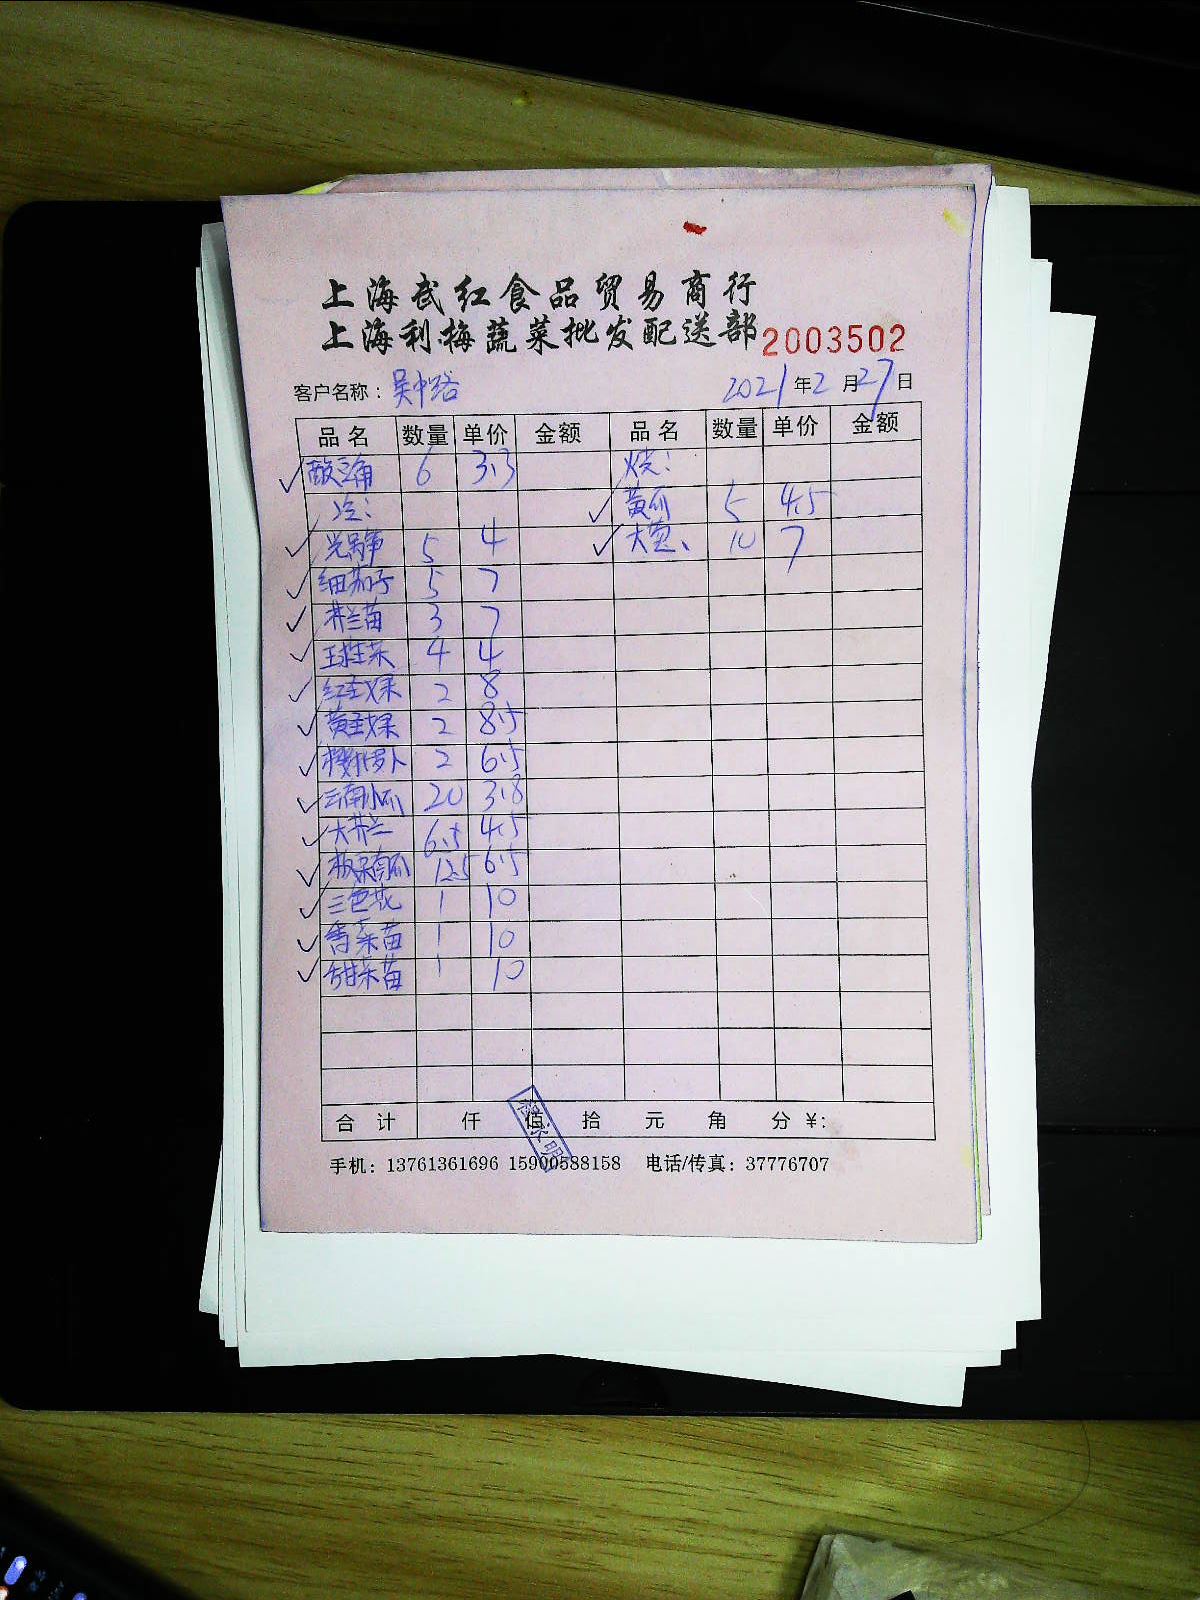 上海武红食品贸易商行
上海利梅蔬菜批发配送部 2003502
客户名称：吴中路 2021年2月27日
品名 数量 单价 金额 品名 数量 单价 金额
酸豆角 6 3.3 烧：
冷： 黄瓜 5 4.5
光莴笋 5 4 大葱、 10 7
细茄子 5 7
芥兰苗 3 7
4 4
红圣女果 2 8
黄圣女果 2 8.5
樱桃萝卜 2 6.5
云南小瓜 20 3.8
大芥兰 6.5 4.5
板栗南瓜 12.5 6.5
三色花 1 10
香菜苗 1 10
甜菜苗 1 10
合计 仟 佰 拾 元 角 分 ¥：
手机：13761361696 15900588158 电话/传真：37776707